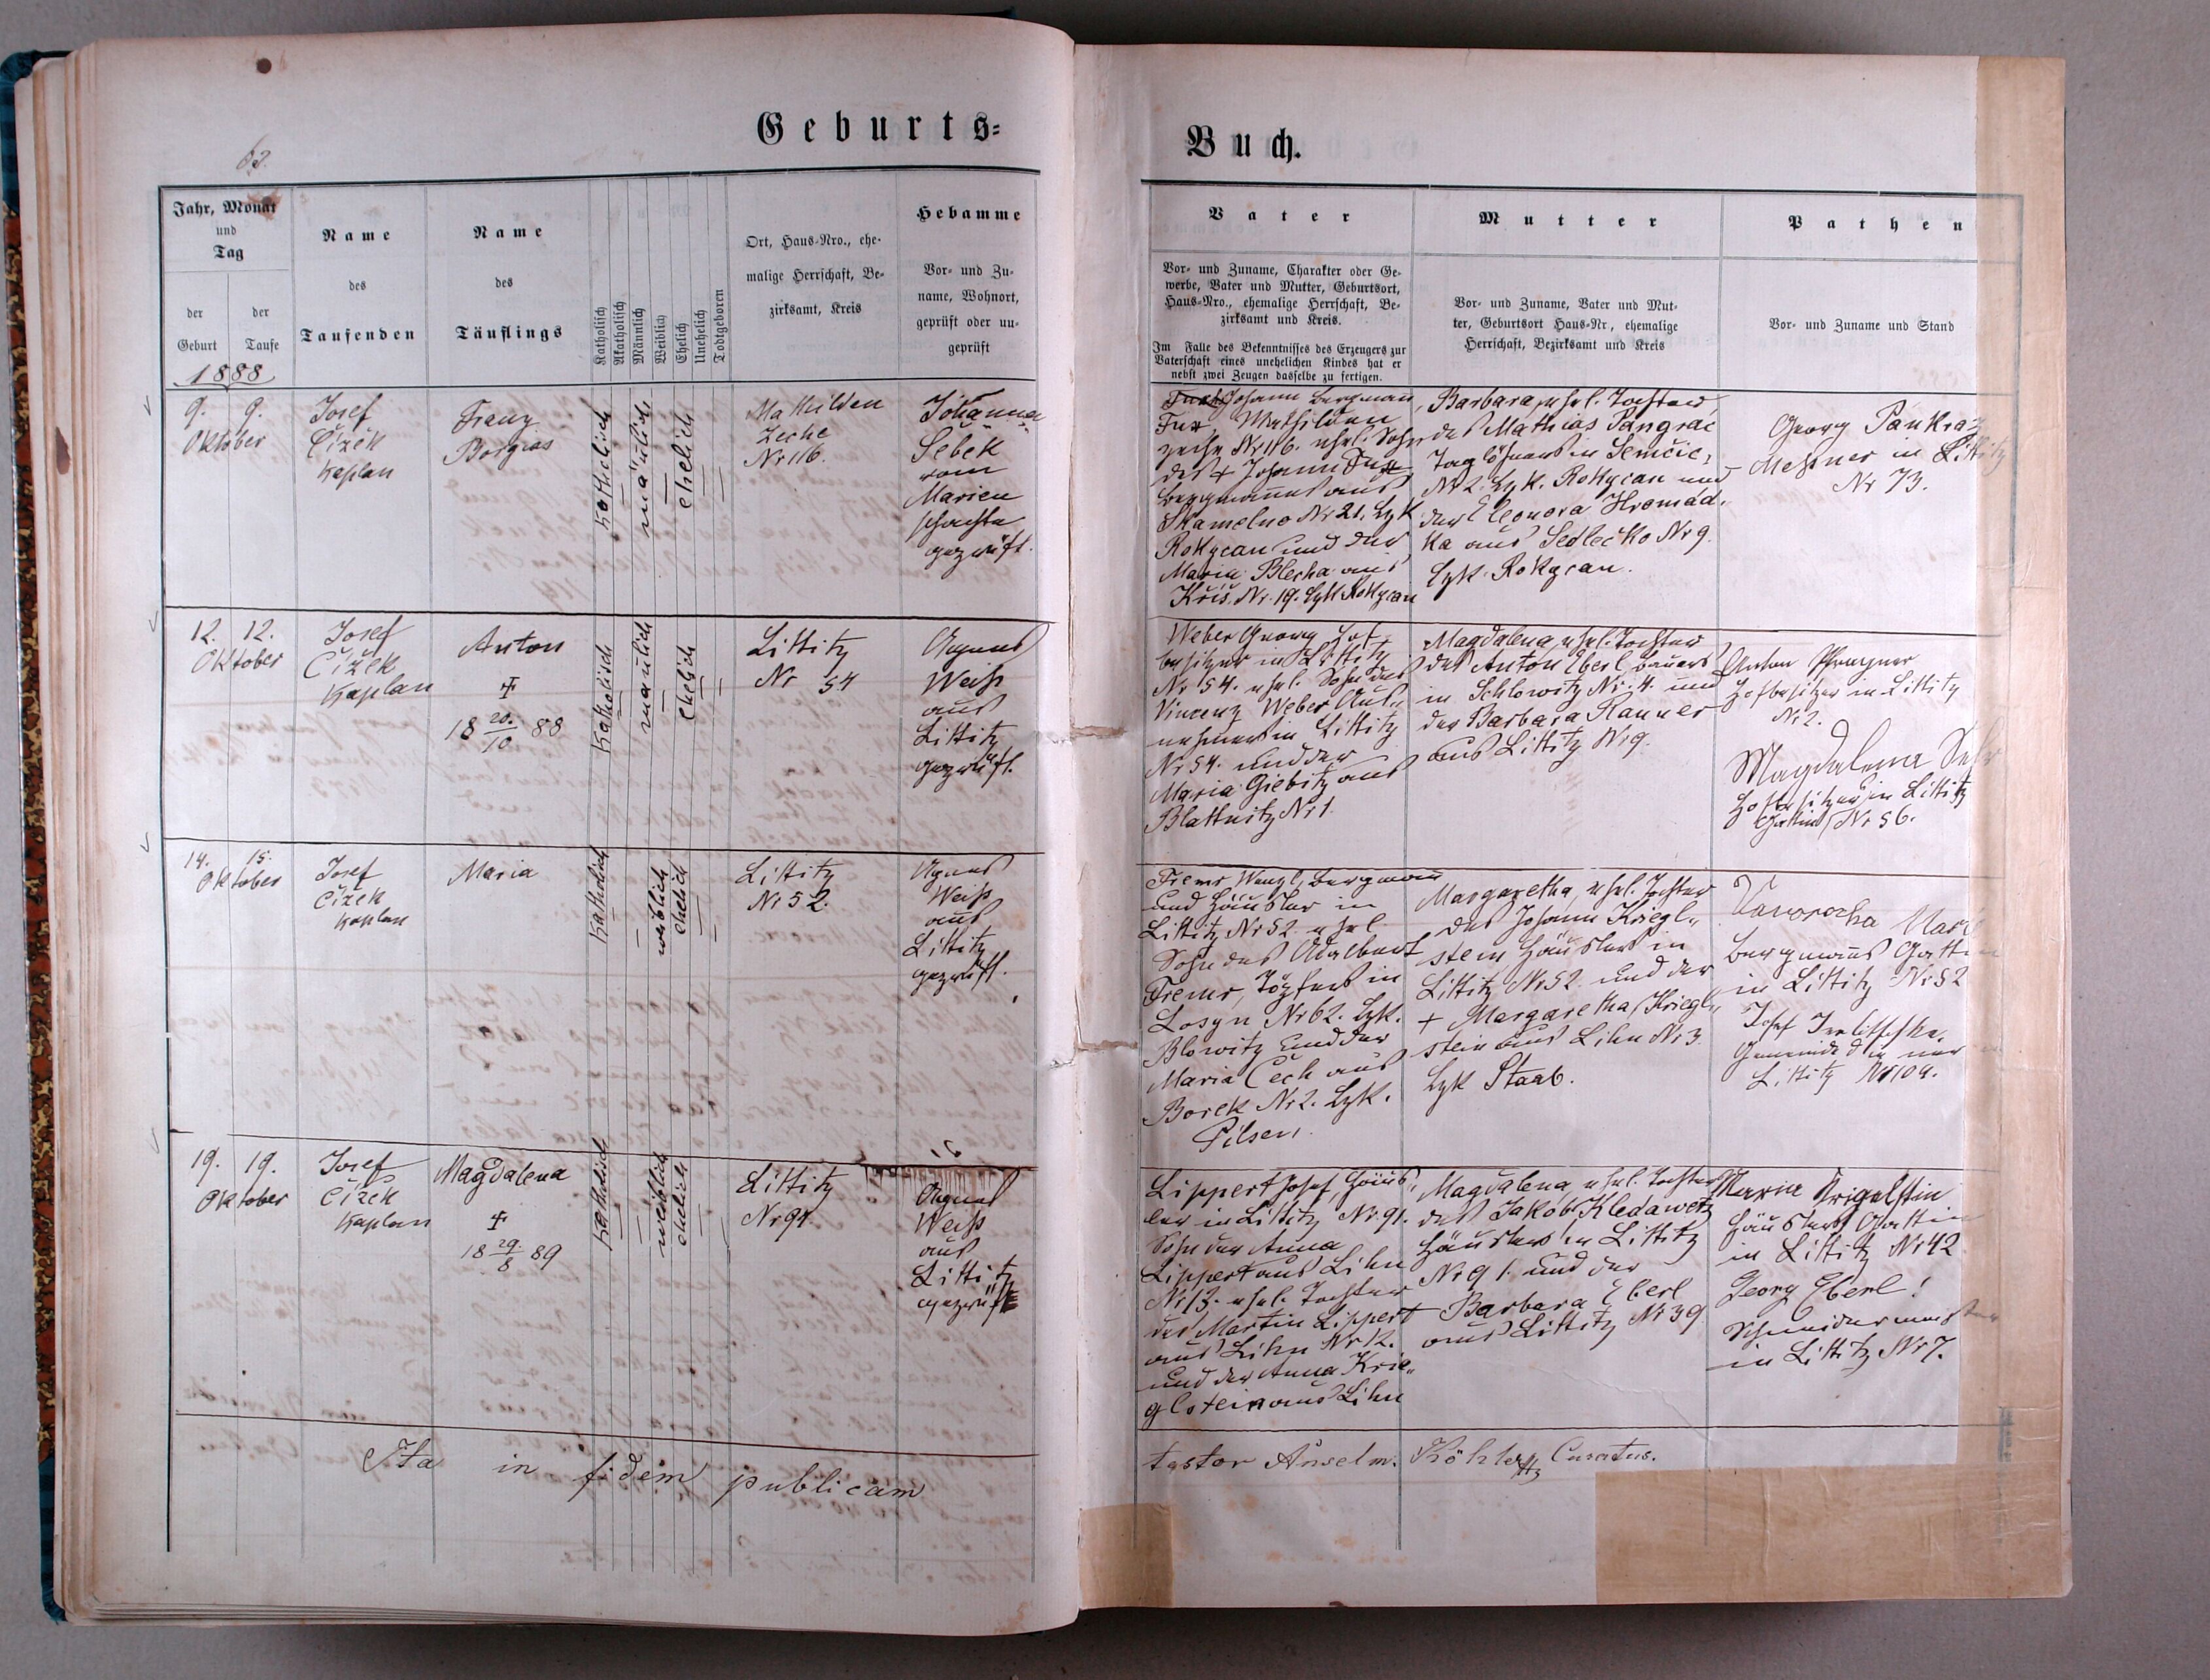 Geburts=
Buch.
63.
Jahr, Monat
und
Tag
der
Geburt
der
Taufe
1888
Name
des
Taufenden
Name
des
Täuflings
Katholisch
Akatholisch
Männlich
Weiblich
Ehelich
Unehelich
Todtgeboren
Ort, Haus-Nro., ehe-
malige Herrschaft, Be-
zirksamt, Kreis
Hebamme
Vor- und Zu-
name, Wohnort,
geprüft oder un-
geprüft
Vater
Vor- und Zuname, Charakter oder Ge-
werbe, Vater und Mutter, Geburtsort,
Haus-Nro., ehemalige Herrschaft, Be-
zirksamt und Kreis.
Im Falle des Bekenntnisses des Erzeugers zur
Vaterschaft eines unehelichen Kindes hat er
nebst zwei Zeugen dasselbe zu fertigen.
Mutter
Vor- und Zuname, Vater und Mut-
ter, Geburtsort Haus-Nr, ehemalige
Herrschaft, Bezirksamt und Kreis
Pathen
Vor- und Zuname und Stand
9. 9.
Oktober
Josef
Čížek
Kaplan
Franz
Borgias
katholisch
mänlich
ehelich
Mathilden
Zeche
Nr 116.
Johanna
Sebek
vom
Marien
schachte
geprüft.
Johann Bergman
Mathilden
zeche Nr 116. ehel. Sohn
des + Johann
Bergmanes aus
Skamelno Nr 21. Bzk
Rokycan und der
Maria Blecha aus
Kříš Nr. 19. Bzk Rokycan
Barbara, ehel. Tochter
des Mathias Pangrac
Taglöhners in Semčic,
Nr 2. Bzk. Rokycan und
der Eleonora Hromád-
ka aus Sedlečko Nr 9.
Bzk. Rokycan.
Georg Pankraz
Meßner in Littitz
Nr 73.
12. 12.
Oktober
Josef
Čížek
Kaplan
Anton
+
18 20./10 88
katholisch
manlich
ehelich
Littitz
Nr 54
Agnes
Weiß
aus
Littitz
geprüft.
Weber Georg Hof-
besitzer in Littitz
Nr 54. ehel. Sohn des
Vinzenz Weber Aus-
nehmers in Littitz
Nr 54. und der
Maria Giebitz aus
Blattnitz Nr 1.
Magdalena, ehel. Tochter
des Anton Eberl Bauers
in Schlowitz Nr. 4. und
der Barbara Ranner
aus Littitz Nr 9.
Anton
Hofbesitzer in Littitz
Nr 2.
Magdalena
Hofbesitzers in Littitz
Gattin Nr 56.
14. 15.
Oktober
Josef
Čížek
Kaplan
Maria
katholisch
weiblich
ehelich
Littitz
Nr 52.
Agnes
Weiß
aus
Littitz
geprüft.
Fremr Wenzl, Bergmann
und Häusler in
Littitz Nr 52. ehel.
Sohn des Adalbert
Fremr, Töpfers in
Losyn Nr 62. Bzk.
Blowitz und der
Maria Čech aus
Borek Nr 2. Bzk.
Pilsen.
Margaretha, ehel. Tochter
des Johann Kriegl-
stein Häuslers in
Littitz Nr 52. und der
+ Margaretha Kriegl-
stein aus Lihn Nr 3.
Bzk Staab.
Bergmans Gattin
in Littitz Nr 52
Josef
Gemeindediener
Littitz Nr 109.
19. 19.
Oktober
Josef
Čížek
Kaplan
Magdalena
+
18 29./8 89
katholisch
weiblich
ehelich
Littitz
Nr 91.
Agnes
Weiß
aus
Littitz
geprüft
Lippert Josef, Häus-
ler in Littitz Nr 91.
Sohn der Anna
Lippert aus Lihn
Nr 13. ehel. Tochter
des Martin Lippert
aus Lihn Nr 12.
und der Anna Krie-
glstein aus Lihn
Magdalena, ehel. Tochter
des Jakob Kledawetz
Häuslers in Littitz
Nr 91. und der
Barbara Eberl
aus Littitz Nr 39
Maria Krigelstin
Häuslers Gattin
in Littitz Nr 42
Georg Eberl
Schneidermeister
in Littitz Nr 7.
Ita in fidem publicam
testor Anselm. Köhler Curatus.